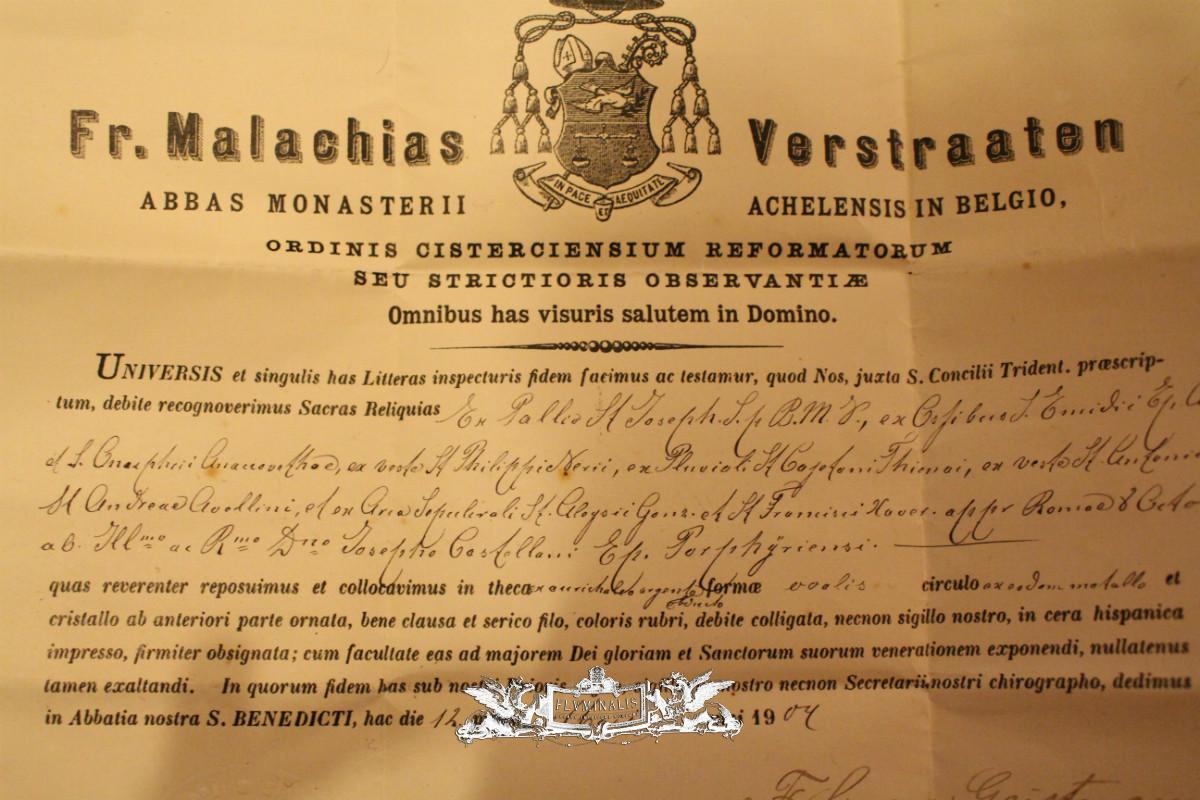 Fr. Malachias Verstraaten
IN PACE ET AEQUITATE
ABBAS MONASTERII ACHELENSIS IN BELGIO,
ORDINIS CISTERCIENSIUM REFORMATORUM
SEU STRICTIORIS OBSERVANTIÆ
Omnibus has visuris salutem in Domino.
UNIVERSIS et singulis has Litteras inspecturis fidem facimus ac testamur, quod Nos, juxta S. Concilii Trident. præscrip-
tum, debite recognoverimus Sacras Reliquias Ex Pallio St Joseph. S. p B. M. V., ex Ossibus S. Emidii Ep.
et S. Onuphrii Anachoretae, ex veste St Philippi Nerii, ex Pluviali St Cajetani Thienai, ex veste St. Antonii
St Andreae Avellini, et ex Arca Sepulcrali St. Aloysii Gonz. et St Francisci Xaver. appr Romae 8 Octo
ab. Illmo ac Rmo Dno Josepho Castellani Ep. Porphÿriensi.
quas reverenter reposuimus et collocavimus in theca ex aurichalco argento obducto formæ ovalis circulo ex eodem metallo et
cristallo ab anteriori parte ornata, bene clausa et serico filo, coloris rubri, debite colligata, necnon sigillo nostro, in cera hispanica
impresso, firmiter obsignata; cum facultate eas ad majorem Dei gloriam et Sanctorum suorum venerationem exponendi, nullatenus
tamen exaltandi. In quorum fidem has sub nostro necnon Secretarii nostri chirographo, dedimus
FLVMINALIS
in Abbatia nostra S. BENEDICTI, hac die 12 1904